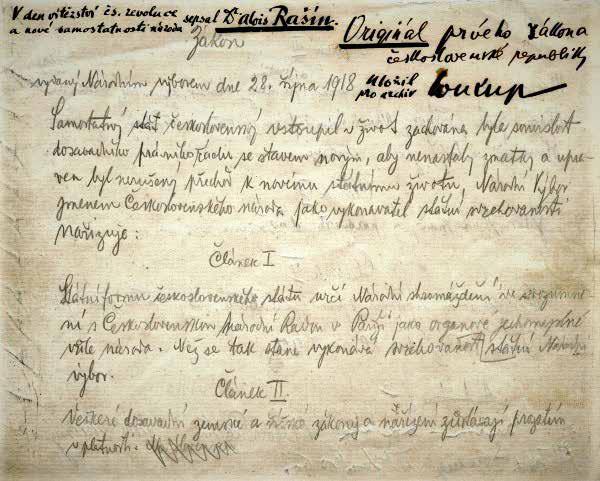 V den vítězství čs. revoluce
a nové samostatnosti národa sepsal Dr Alois Rašín.
Originál prvého zákona
československé republiky
uložil
pro archiv Soukup
Zákon
vydaný Národním výborem dne 28. října 1918
Samostatný stát československý vstoupil v život zachována byla souvislost
dosavadního právního řádu se stavem novým, aby nenastaly zmatky a upra-
ven byl nerušený přechod k novému státnímu životu, Národní Výbor
jménem Československého národa jako vykonavatel státní svrchovanosti
nařizuje:
Článek I
Státní formu československého státu určí Národní shromáždění ve srozumě-
ní s Československou Národní Radou v Paříži jako orgánové jednomyslné
vůle národa. Než se tak stane vykonává svrchovanost státní Národní
výbor.
Článek II
Veškeré dosavadní zemské a říšské zákony a nařízení zůstávají prozatím
v platnosti.